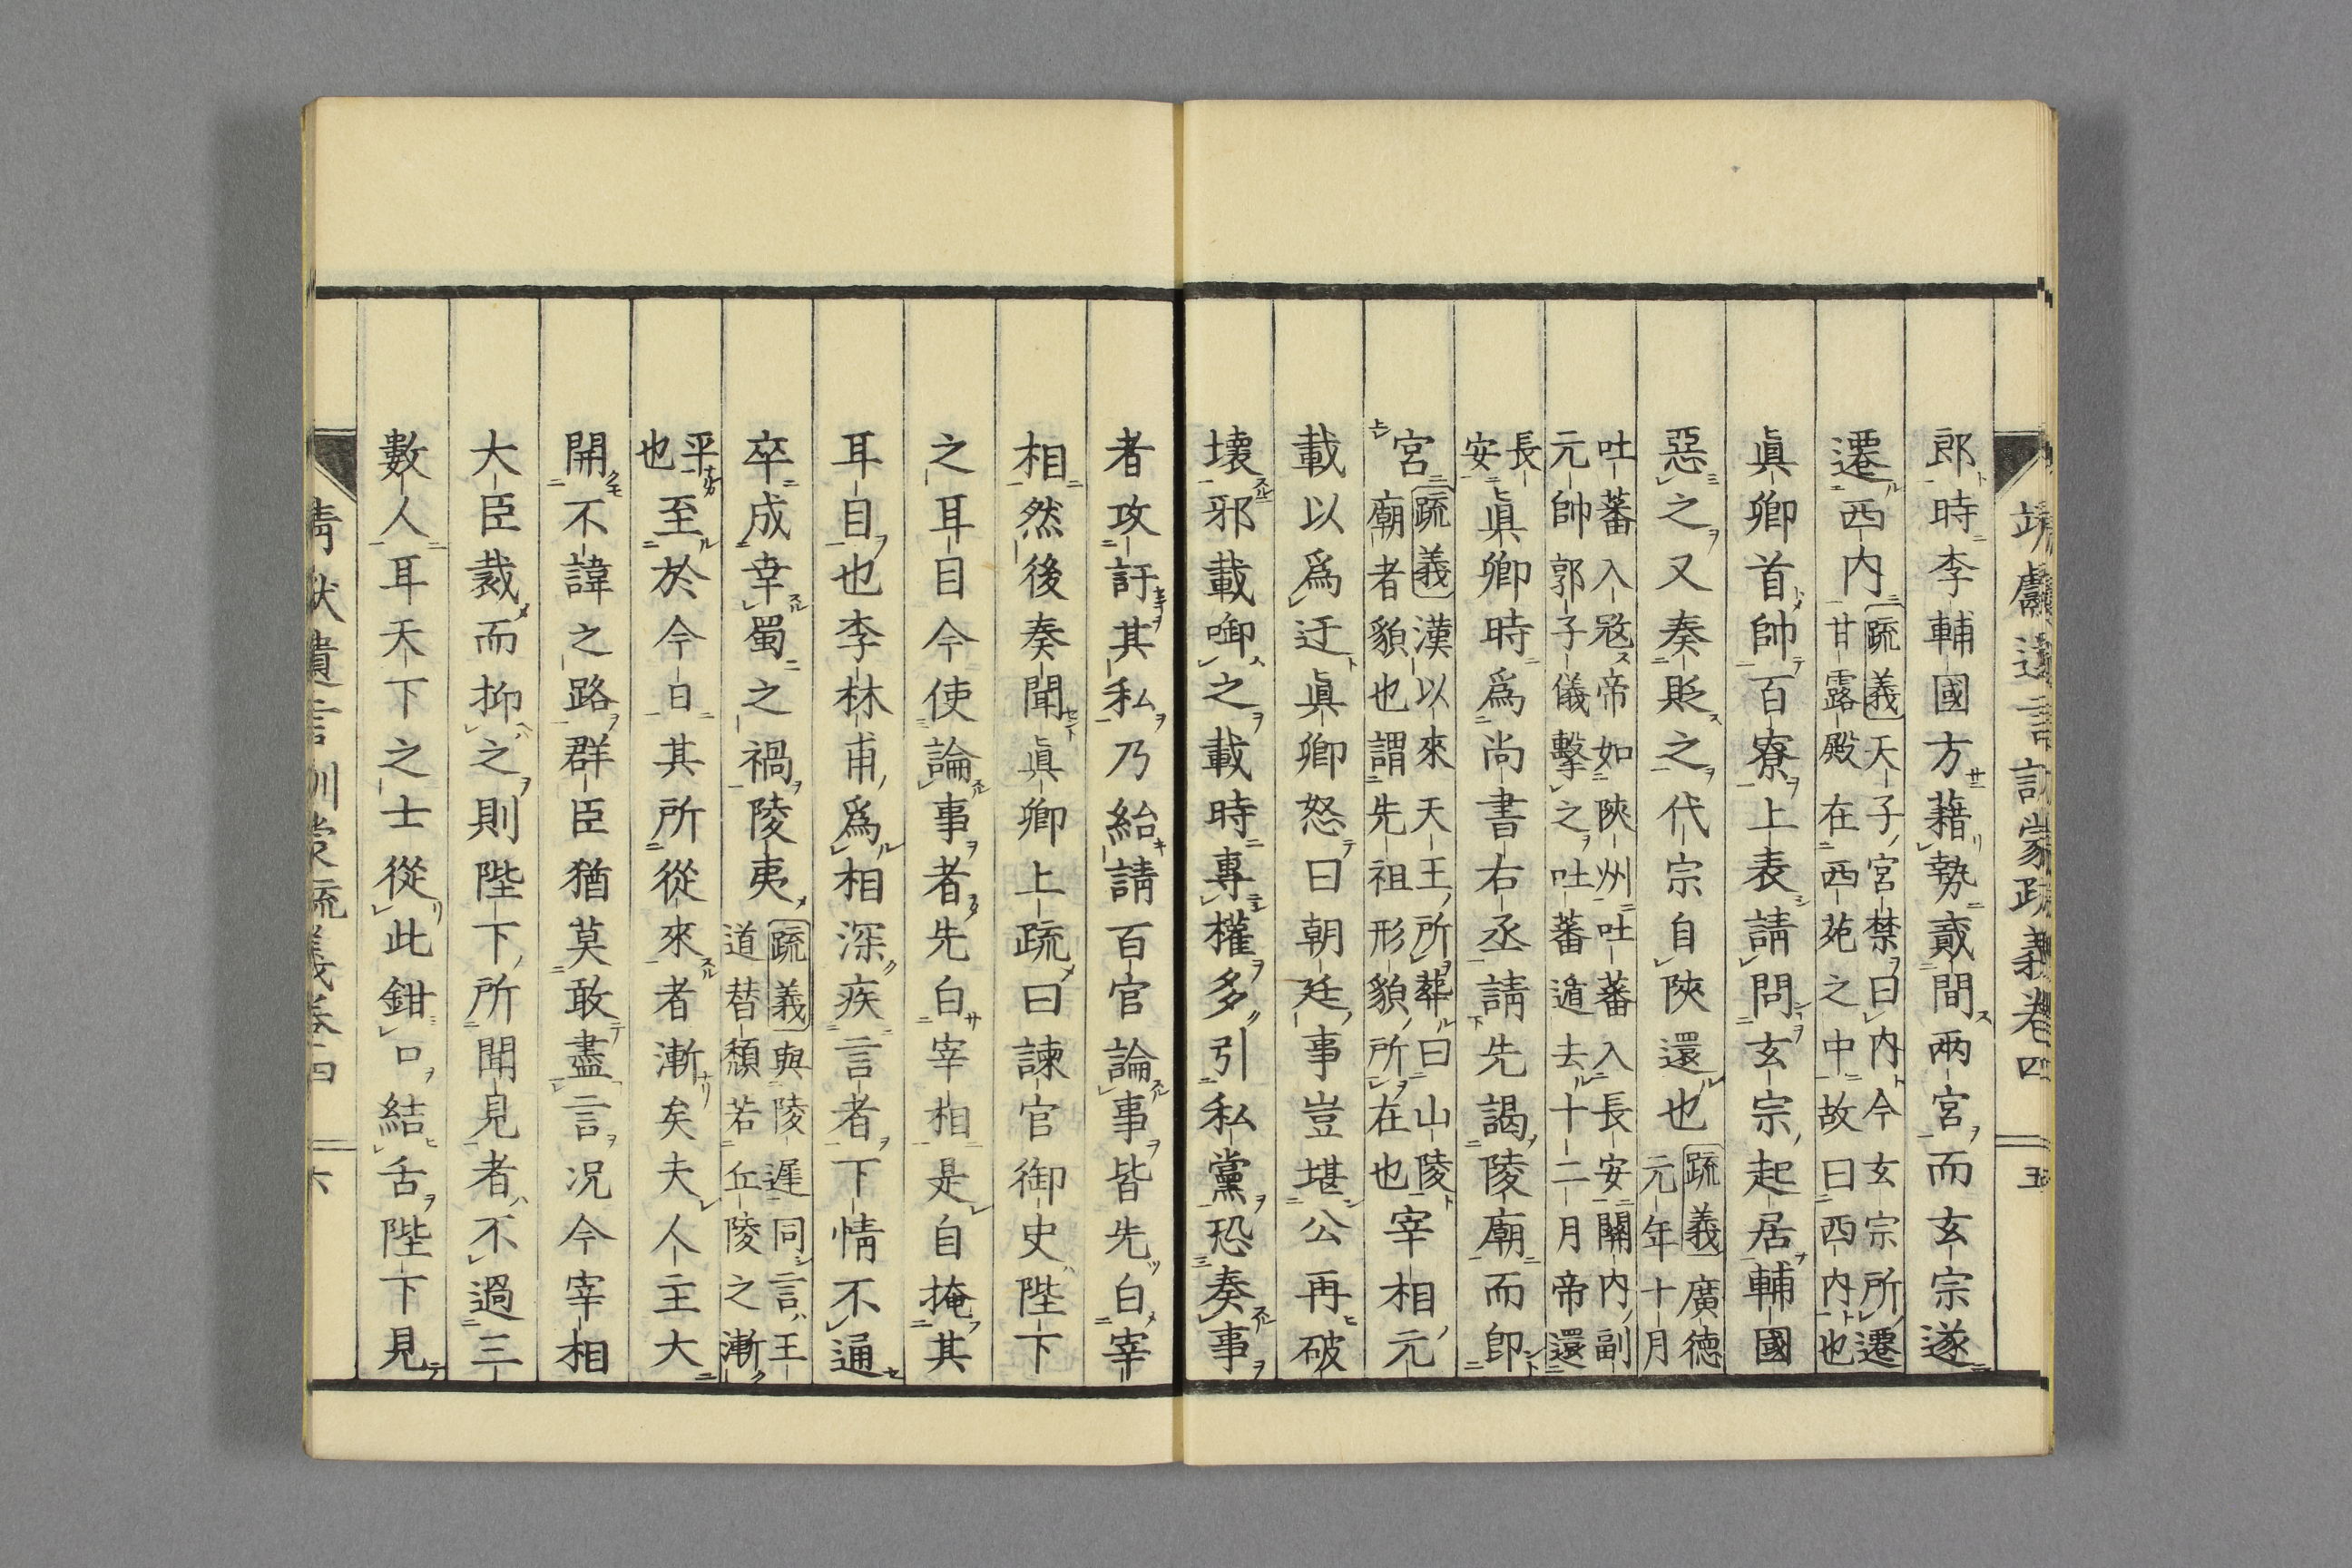 靖獻遺言訓蒙疏義卷四 五
郎時李輔國方藉勢貳間兩宮而玄宗遂
遷西内
疏義天子宮禁曰内今玄宗所遷
甘露殿在西苑之中故曰西内也
眞卿首帥百寮上表請問玄宗起居輔國
惡之又奏貶之代宗自陝還也
疏義廣德
元年十月
吐蕃入寇帝如陝州吐蕃入長安關内副
元帥郭子儀擊之吐蕃遁去十二月帝還
長
安
眞卿時爲尚書右丞請先謁陵廟而即
宮
疏義漢以來天王所葬曰山陵
廟者貌也謂先祖形貌所在也
宰相元
載以爲迂眞卿怒曰朝廷事豈堪公再破
壞邪載啣之載時專權多引私黨恐奏事
者攻訐其私乃紿請百官論事皆先白宰
相然後奏聞眞卿上疏曰諫官御史陛下
之耳目今使論事者先白宰相是自掩其
耳目也李林甫爲相深疾言者下情不通
卒成幸蜀之禍陵夷
疏義與陵遲同言王
道替頽若丘陵之漸
平
也
至於今日其所從來者漸矣夫人主大
開不諱之路群臣猶莫敢盡言况今宰相
大臣裁而抑之則陛下所聞見者不過三
數人耳天下之士從此鉗口結舌陛下見
靖獻遺言訓蒙疏義卷四 六